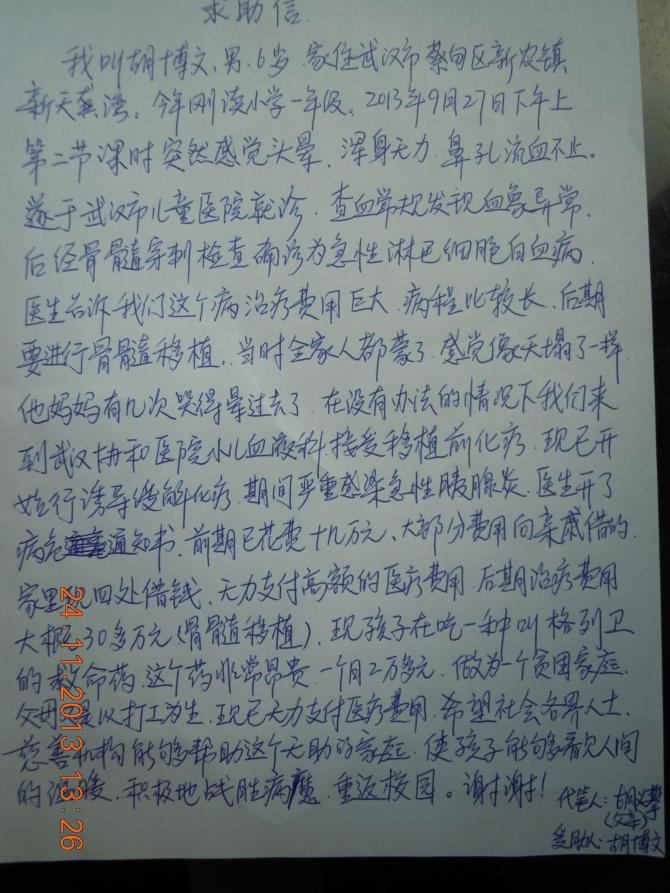 求助信.
我叫胡博文,男.6岁.家住武汉市蔡甸区新农镇
新天 湾。今年刚读小学一年级。2013年9月27日下午上
第二节课时突然感觉头晕、浑身无力.鼻孔流血不止。
遂于武汉市儿童医院就诊.查血常规发现血象异常.
后经骨髓穿刺检查确诊为急性淋巴细胞白血病.
医生告诉我们这个病治疗费用巨大.病程比较长.后期
要进行骨髓移植.当时全家人都蒙了.感觉像天塌了一样.
他妈妈有几次哭得晕过去了.在没有办法的情况下我们来
到武汉协和医院小儿血液科接受移植前化疗.现已开
始行诱导缓解化疗.期间严重感染急性胰腺炎.医生开了
病危通知书.前期已花费十几万元、大部分费用向亲戚借的.
家里已四处借钱、无力支付高额的医疗费用.后期治疗费用
大概30多万元(骨髓移植).现孩子在吃一种叫格列卫
的救命药.这个药非常昂贵.一个月2万多元.做为一个贫困家庭.
父母只是以打工为生.现已无力支付医疗费用.希望社会各界人士.
慈善机构能够帮助这个无助的家庭.使孩子能够看见人间
的温暖.积极地战胜病魔.重返校园。谢谢!
代笔人:胡 攀
(父亲)
受助人:胡博文
24.11.2013 13:26